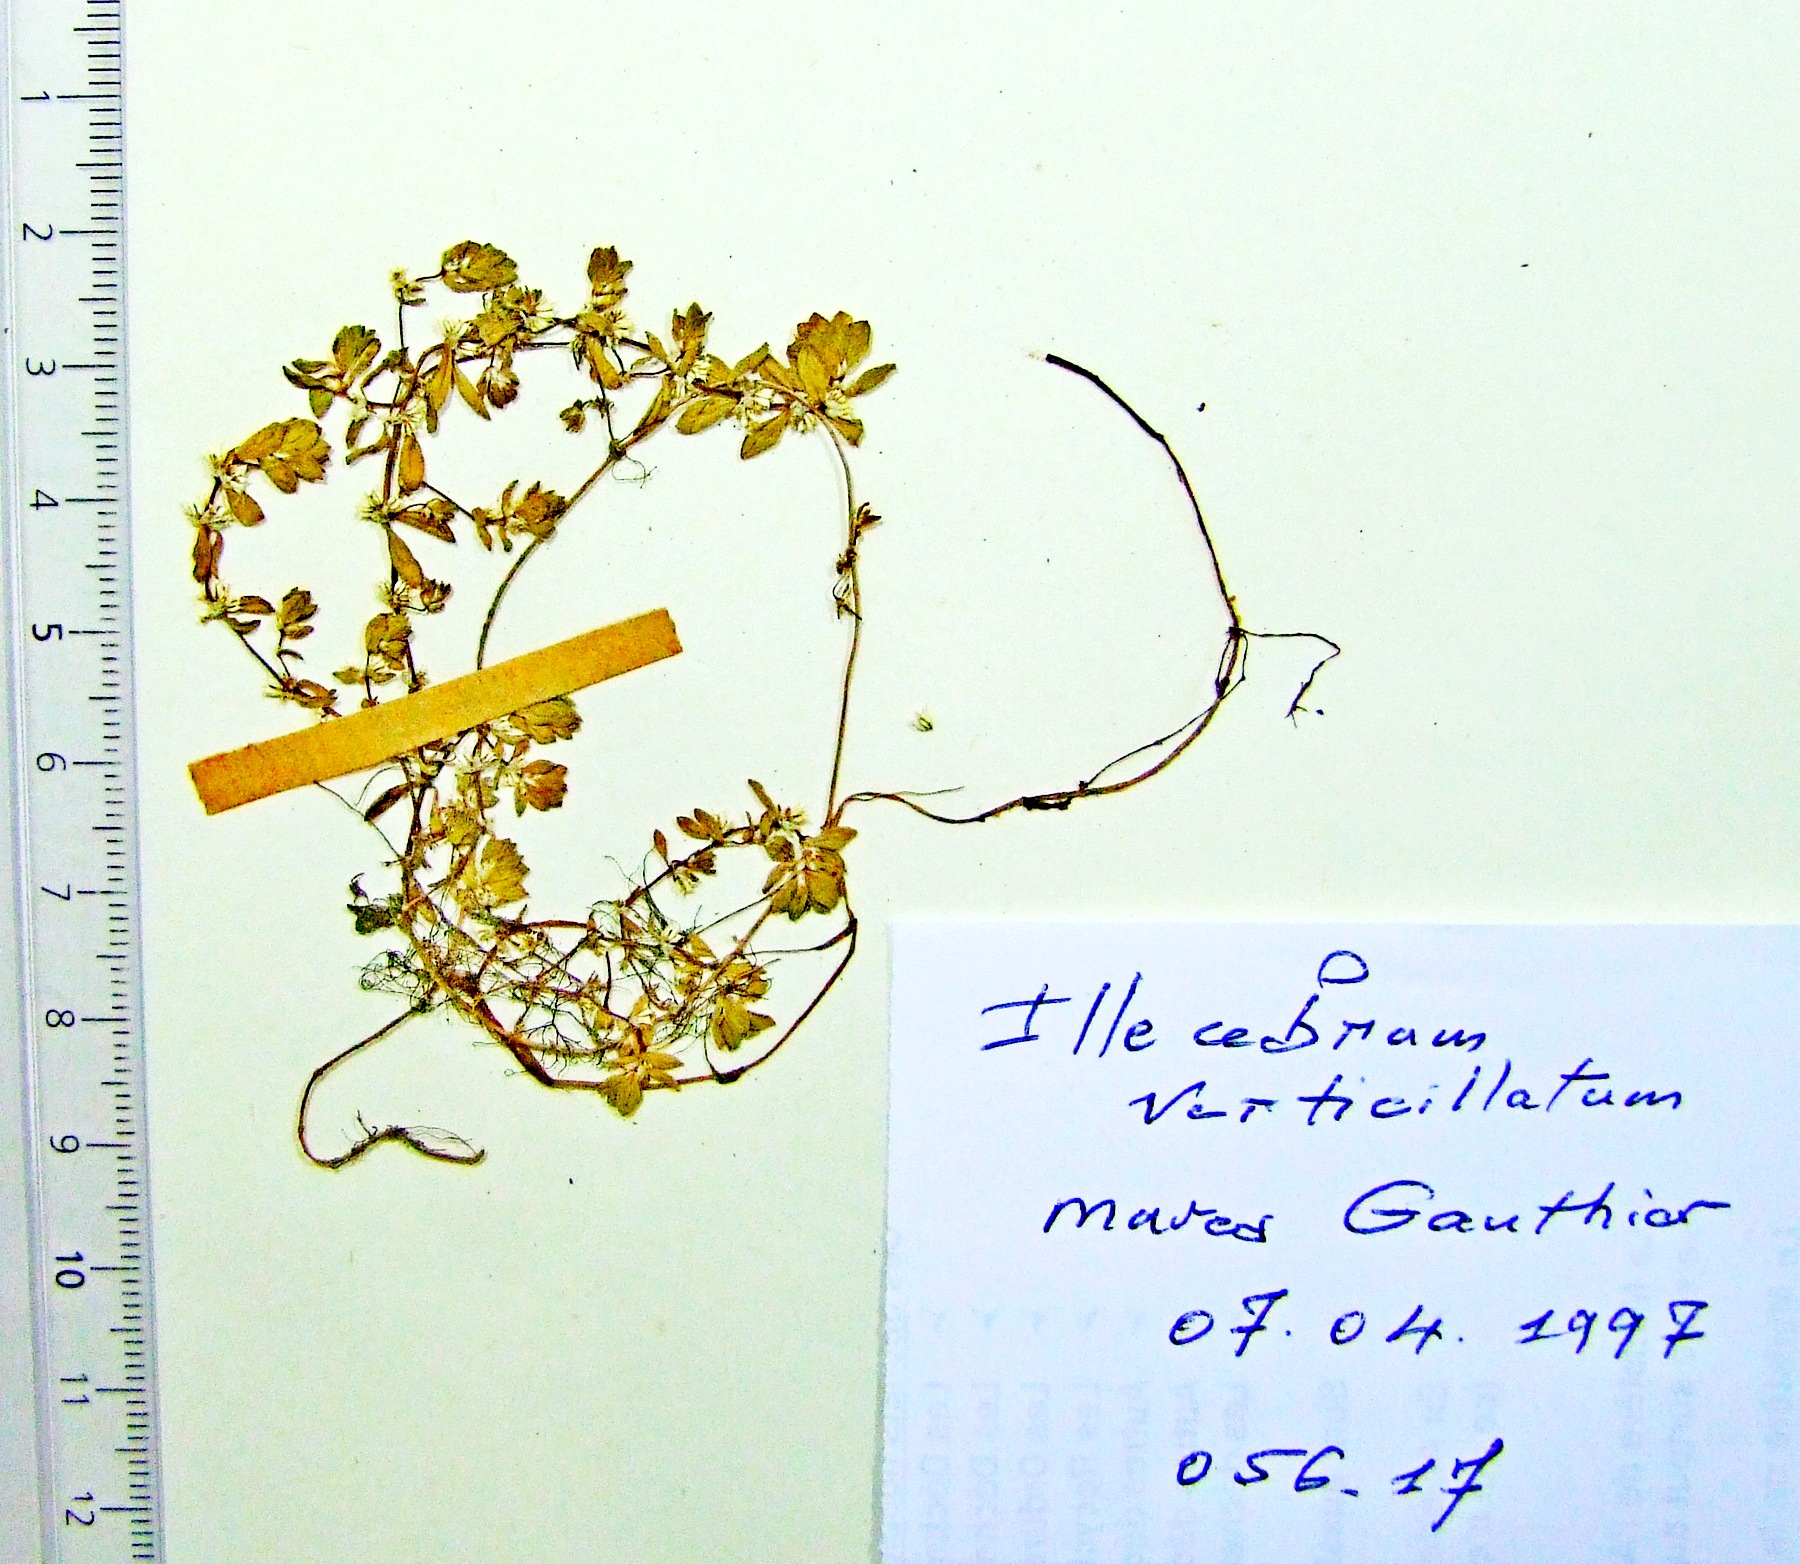 1
2
3
4
5
6
7
8
9
10
11
12
Illecebrum
verticillatum
mares Gauthier
07.04.1997
056-17